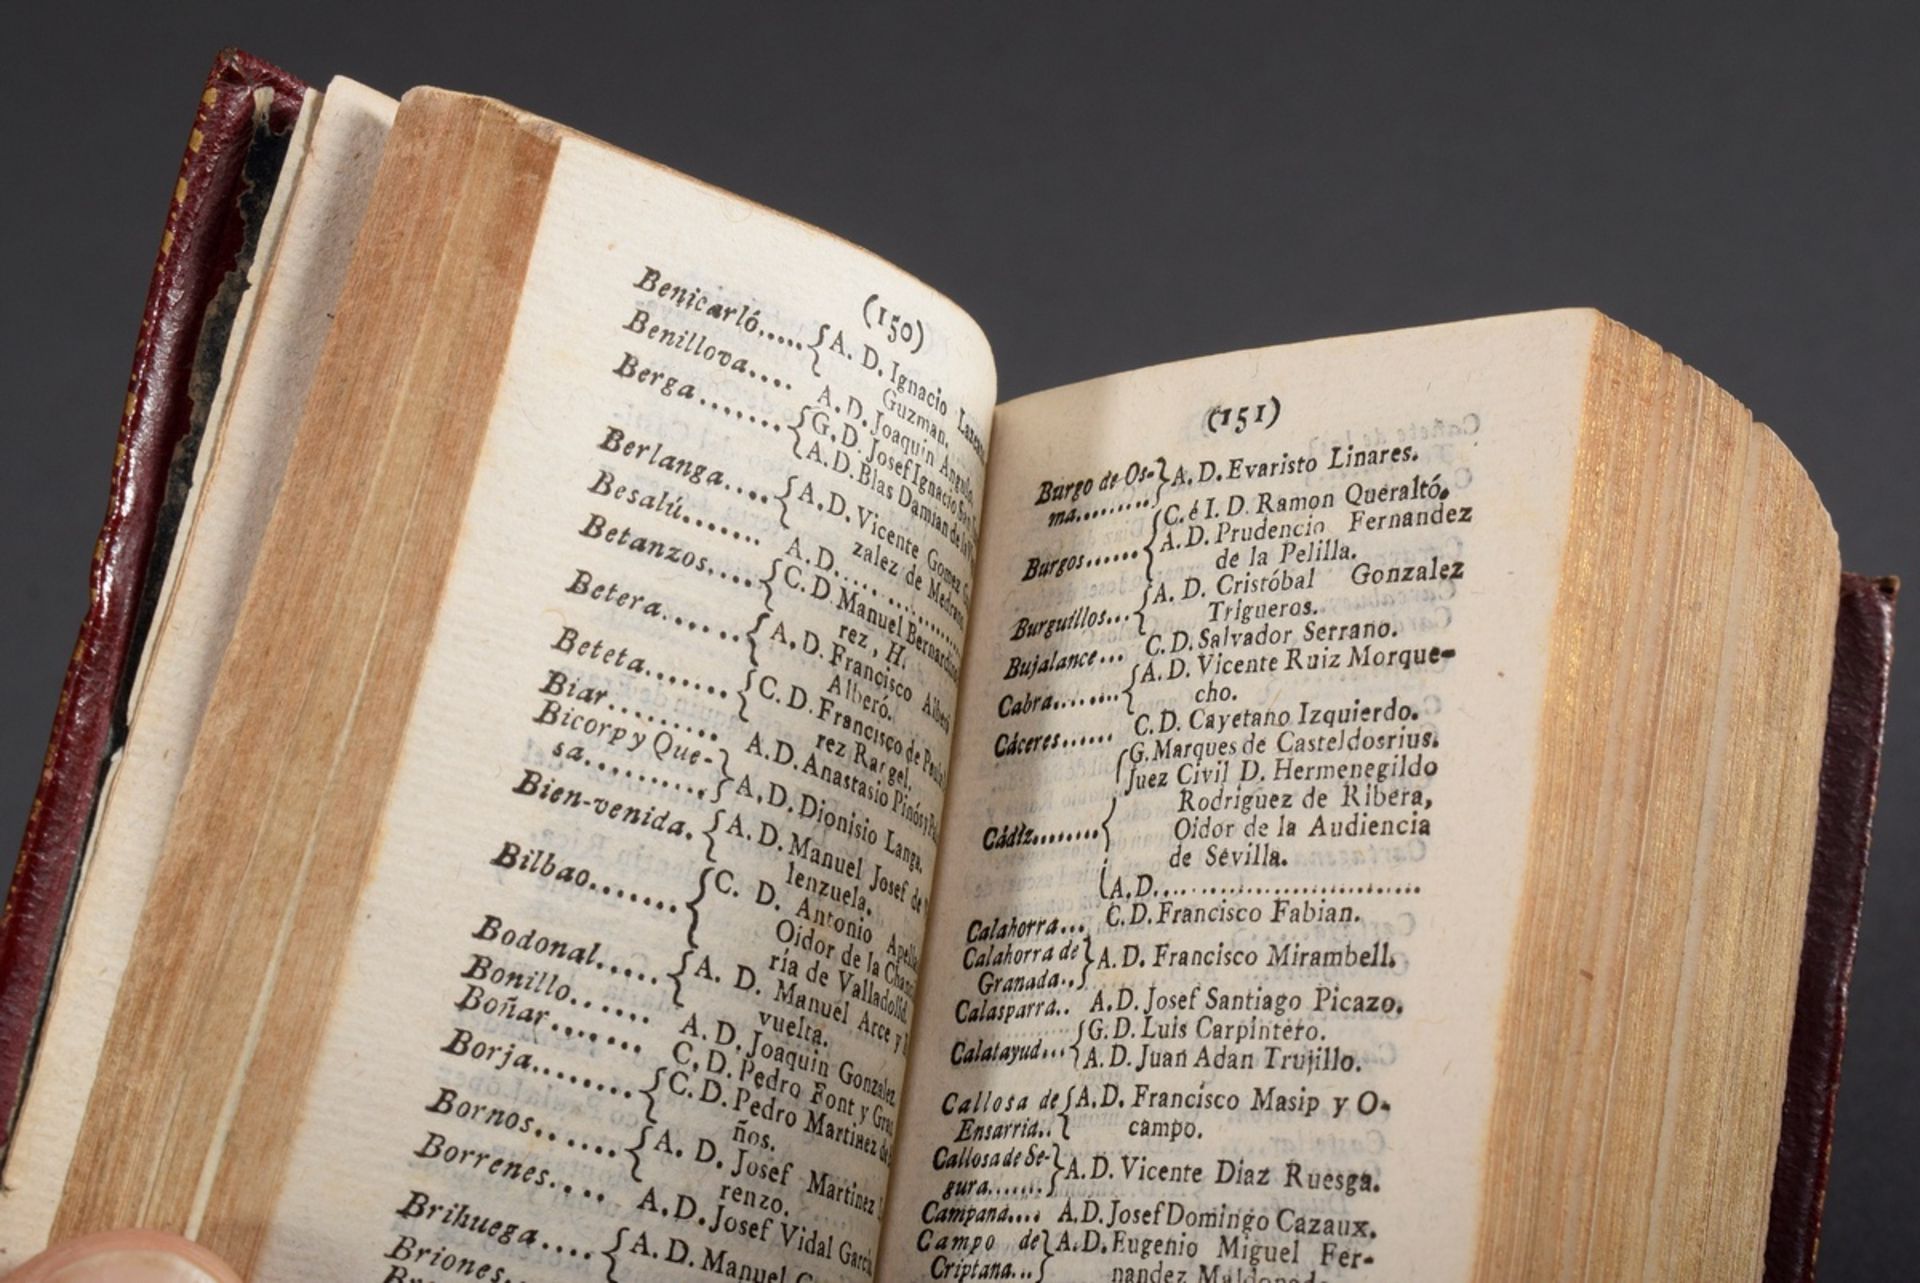 (150)
Benicarló..... { A. D. Ignacio
Guzman.
Benillova.... A. D. Joaquin Angulo.
Berga....... { G. D. Josef Ignacio
A. D. Blas Damian de la
Berlanga.... { A. D. Vicente Gomez
zalez de Medrano.
Besalú...... A. D. ............
Betanzos.... { C. D. Manuel Bernardino
rez, H.
Betera...... { A. D. Francisco Alberó
Alberó.
Beteta....... { C. D. Francisco de Paula
rez Rangel.
Biar........ A. D. Anastasio Pinós y
Bicorp y Que-
sa......... } A. D. Dionisio Langa.
Bien-venida. { A. D. Manuel Josef de
lenzuela.
Bilbao....... { C. D. Antonio
Oidor de la
ría de Valladolid.
Bodonal..... { A. D. Manuel Arce y
vuelta.
Bonillo...... A. D. Joaquin Gonzalez.
Boñar....... C. D. Pedro Font y
Borja........ { C. D. Pedro Martinez de
ños.
Bornos...... { A. D. Josef Martinez
renzo.
Borrenes.... A. D. Josef Vidal García.
Brihuega.... { A. D. Manuel
Briones.
(151)
Burgo de Os-
ma......... } A. D. Evaristo Linares.
Burgos...... { C. é I. D. Ramon Queraltó.
A. D. Prudencio Fernandez
de la Pelilla.
Burguillos... { A. D. Cristóbal Gonzalez
Trigueros.
Bujalance... C. D. Salvador Serrano.
Cabra........ { A. D. Vicente Ruiz Morque-
cho.
Cáceres...... C. D. Cayetano Izquierdo.
Cádiz........ { G. Marques de Casteldosrius.
Juez Civil D. Hermenegildo
Rodriguez de Ribera,
Oidor de la Audiencia
de Sevilla.
A. D. ..............................
Calahorra... C. D. Francisco Fabian.
Calahorra de
Granada.. } A. D. Francisco Mirambell.
Calasparra.. A. D. Josef Santiago Picazo.
Calatayud... { G. D. Luis Carpintero.
A. D. Juan Adan Trujillo.
Callosa de { A. D. Francisco Masip y O-
Ensarria.. campo.
Callosa de Se-
gura....... } A. D. Vicente Diaz Ruesga.
Campana.... A. D. Josef Domingo Cazaux.
Campo de } A. D. Eugenio Miguel Fer-
Criptana... nandez Maldonado.